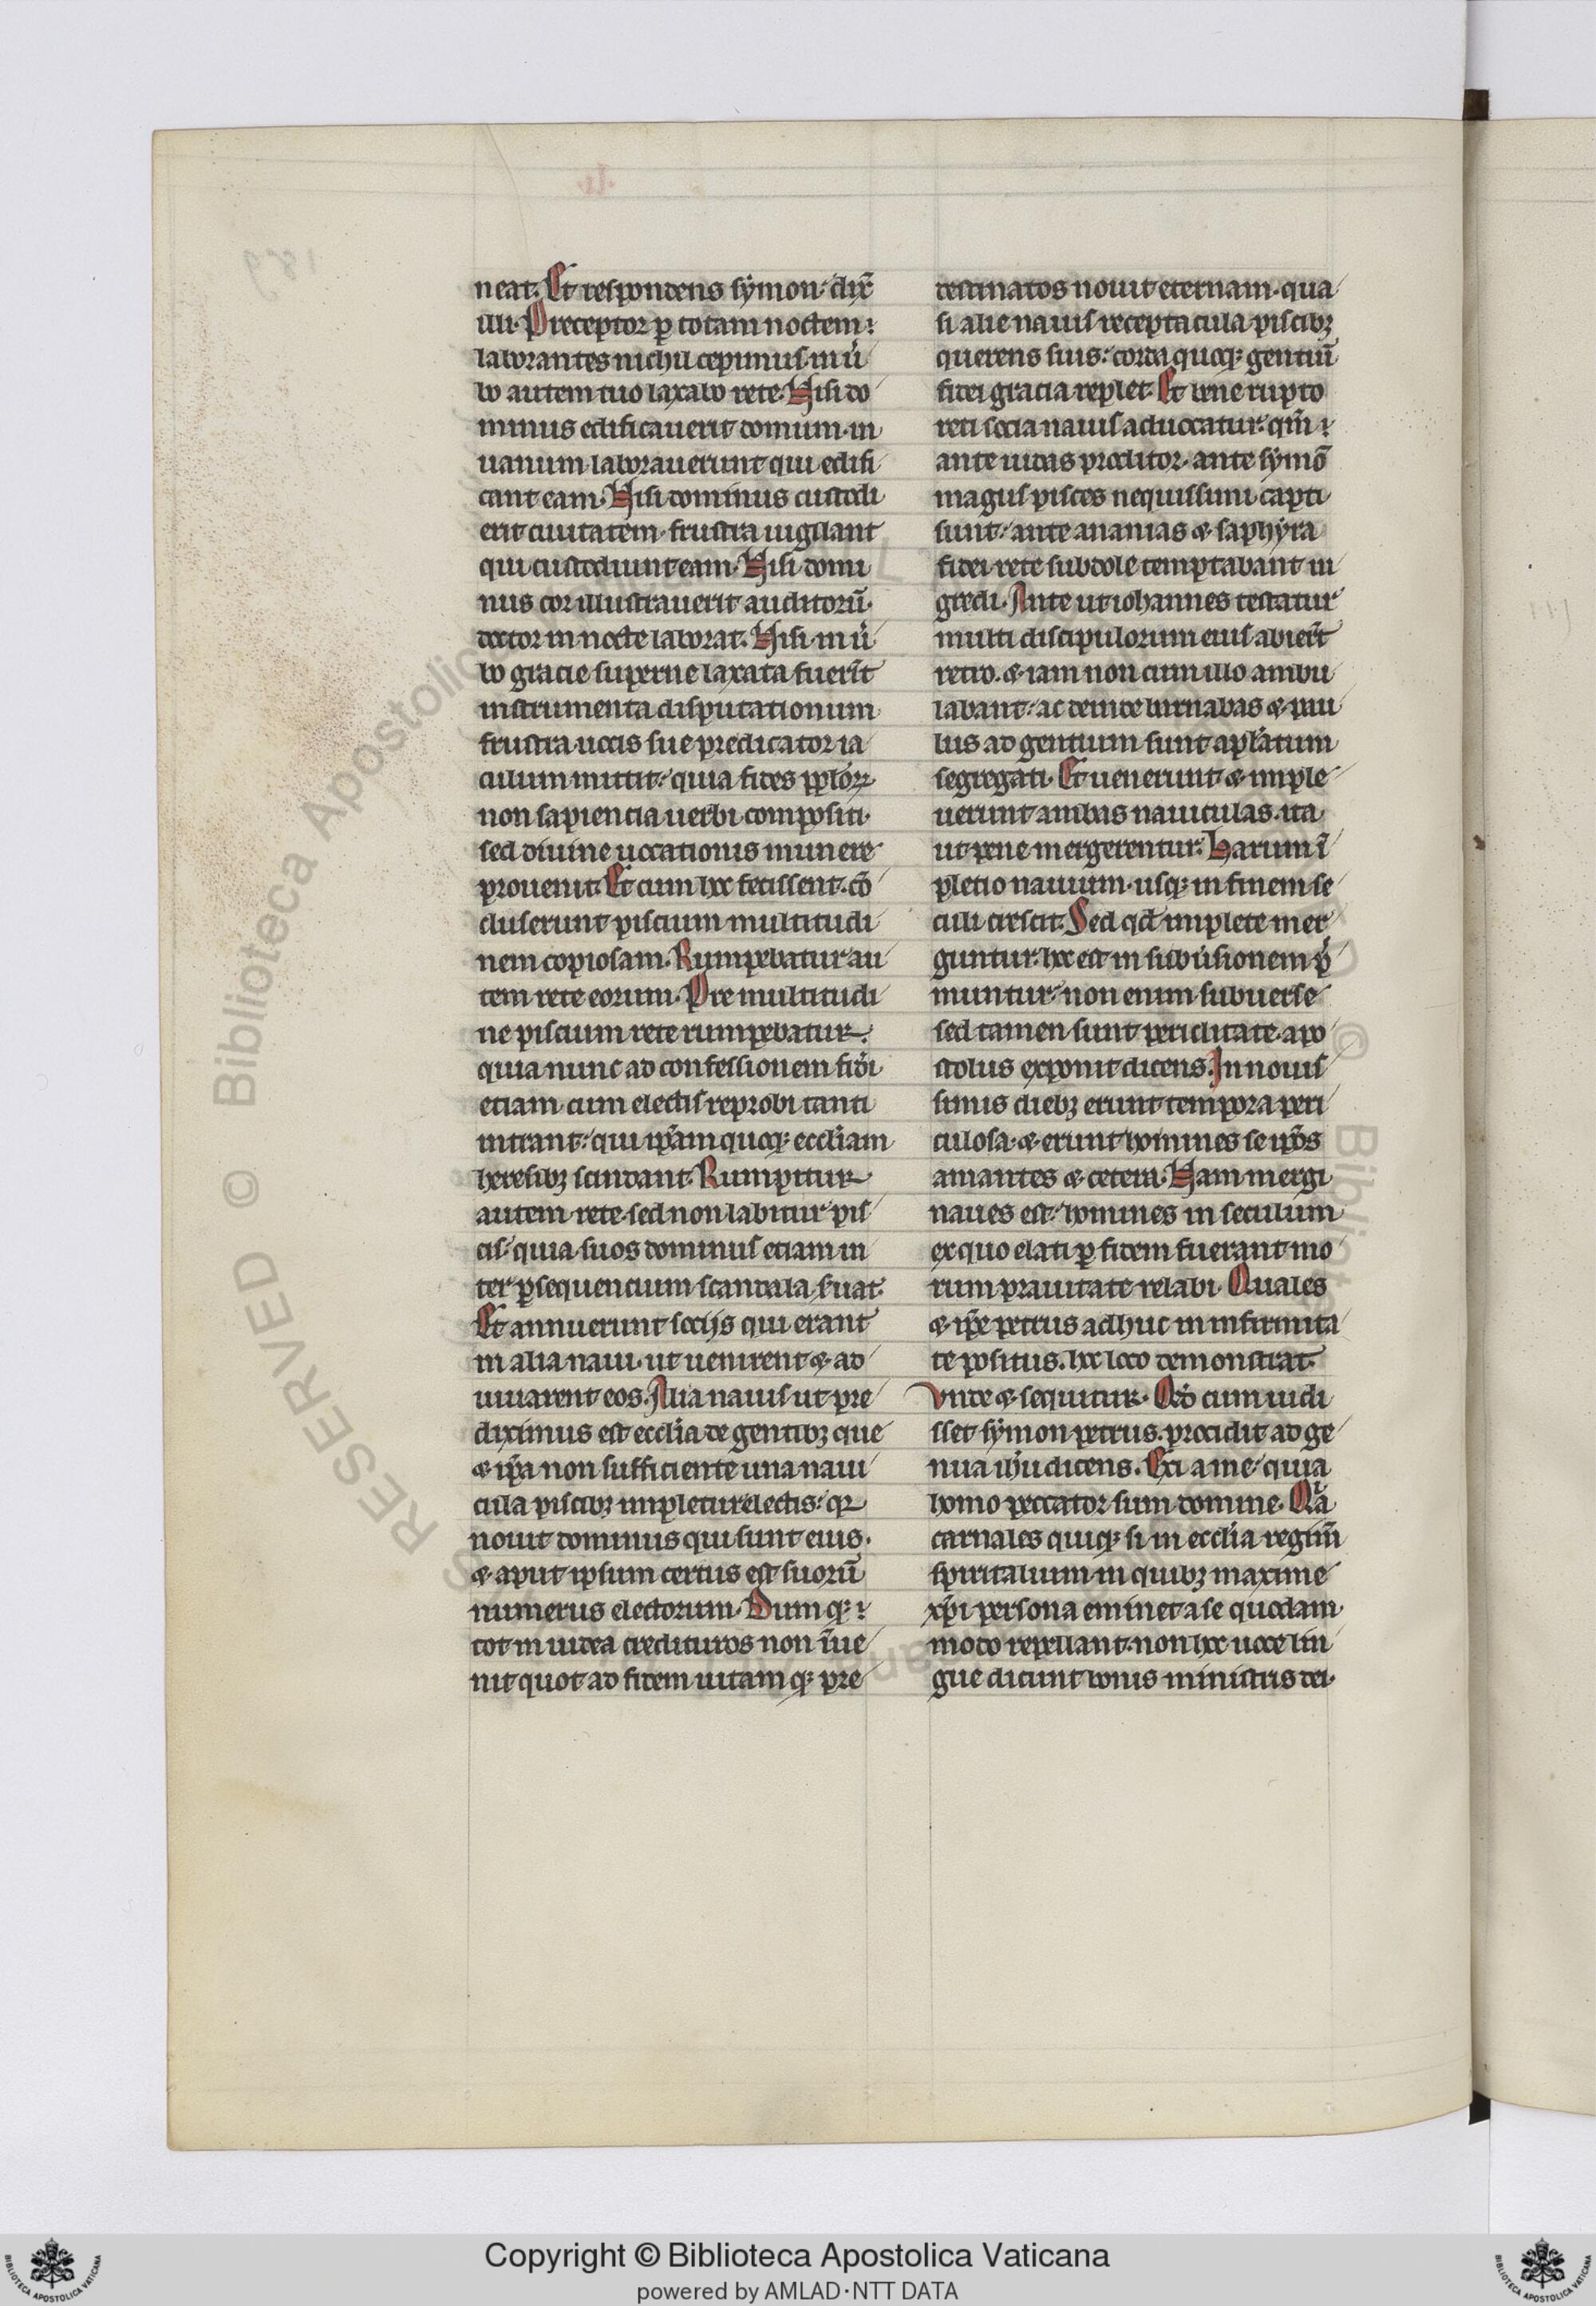 neat. Et respondens symon dix̄
illi. Preceptor ꝑ totam noctem
laborantes nichil cepimus. in ū
bo autem tuo laxabo rete. Nisi do
minus edificauerit domum. in
uanum laborauerunt qui edifi
cant eam. Nisi dominus custodi
erit ciuitatem. frustra uigilant
qui custodiunt eam. Nisi domi
nus cor illustrauerit auditorū.
doctor in nocte laborat. Nisi in ū
bo gracie superne laxata fuerīt
instrumenta disputationum
frustra uocis sue predicator ia
culum mittit. quia fides pplōꝝ
non sapiencia uerbi compositi.
sed diuine uocationis munere
prouenit. Et cum hoc fecissent. cō
cluserunt piscium multitudi
nem copiosam. Rumpebatur au
tem rete eorum. Pre multitudi
ne piscium rete rumpebatur.
quia nunc ad confessionem fidi
etiam cum electis reprobi tanti
intrant. qui ip̄am quoqꝫ eccl̄iam
heresibꝫ scindant. Rumpitur
autem rete. sed non labitur pis
cis. quia suos dominus etiam in
ter ꝑsequencium scandala s̄uat.
Et annuerunt socijs qui erant
in alia naui. ut uenirent & ad
iuuarent eos. Alia nauis ut pre
diximus est eccl̄ia de gentibꝫ que
& ip̄a non sufficiente una naui
cula piscibꝫ impletur electis. qꝛ
nouit dominus qui sunt eius.
& aput ipsum certus est suorū
numerus electorum. Dum qꝫ
tot in iudea credituros non īue
nit quot ad fidem uitam qꝫ pre
destinatos nouit eternam. qua
si alie nauis receptacula piscibꝫ
querens suis. corda quoqꝫ gentiū
fidei gracia replet. Et bene rupto
reti socia nauis aduocatur. qm̄
ante iudas proditor. ante symō
magus pisces nequissimi capti
sunt. ante ananias & saphyra
fidei rete subdole temptabant in
gredi. Ante ut iohannes testatur
multi discipulorum eius abiert̄
retro. & iam non cum illo ambu
labant. ac deinde barnabas & pau
lus ad gentium sunt apl̄atum
segregati. Et uenerunt & imple
uerunt ambas nauiculas. ita
ut pene mergerentur. Harum ī
pletio nauium. usqꝫ in finem se
culi crescit. Sed qd̄ implete mer
guntur. hoc est in subūsionem p̄
muntur. non enim subuerse
sed tamen sunt periclitate. apo
stolus exponit dicens. In nouis
simis diebꝫ erunt tempora peri
culosa. & erunt homines se ip̄os
amantes & cetera. Nam mergi
naues est. homines in seculum
ex quo elati ꝑ fidem fuerant mo
rum prauitate relabi. Quales
& ip̄e petrus adhuc in infirmita
te positus. hoc loco demonstrat.
Vnde & sequitur. Qd̄ cum uidi
sset symon petrus. procidit ad ge
nua ih̄u dicens. Exi a me. quia
homo peccator sum domine. Qͣ
carnales quiqꝫ si in eccl̄ia regim̄
spiritalium in quibꝫ maxime
xp̄i persona eminet a se quodam
modo repellant. non hoc uoce lin
gue dicunt bonis ministris dei.
Copyright © Biblioteca Apostolica Vaticana
powered by AMLAD·NTT DATA